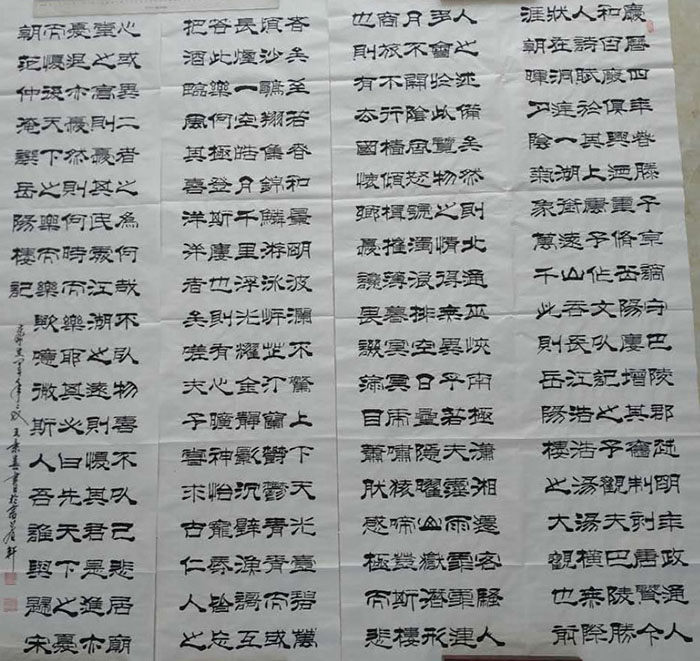 慶曆四年春滕子京謫守巴陵郡越明年政通人
和百廢俱興迺重脩岳陽樓增其舊制刻唐賢今
人詩賦於其上屬予作文以記之予觀夫巴陵勝
狀在洞庭一湖銜遠山吞長江浩浩湯湯橫無際
涯朝暉夕陰氣象萬千此則岳陽樓之大觀也前
人之述備矣然則北通巫峽南極瀟湘遷客騷人
多會於此覽物之情得無異乎若夫霪雨霏霏連
月不開陰風怒號濁浪排空日星隱曜山嶽潛形
商旅不行檣傾楫摧薄暮冥冥虎嘯猿啼登斯樓
也則有去國懷鄉憂讒畏譏滿目蕭然感極而悲
者矣至若春和景明波瀾不驚上下天光壹碧萬
頃沙鷗翔集錦鱗游泳岸芷汀蘭鬱鬱青青而或
長煙一空皓月千里浮光耀金靜影沉璧漁歌互
答此樂何極登斯樓也則有心曠神怡寵辱皆忘
把酒臨風其喜洋洋者矣嗟夫予嘗求古仁人之
心或異二者之為何哉不以物喜不以己悲居廟
堂之高則憂其民處江湖之遠則憂其君是進亦
憂退亦憂然則何時而樂耶其必曰先天下之憂
而憂後天下之樂而樂歟噫微斯人吾誰與歸宋
朝范仲淹撰岳陽樓記